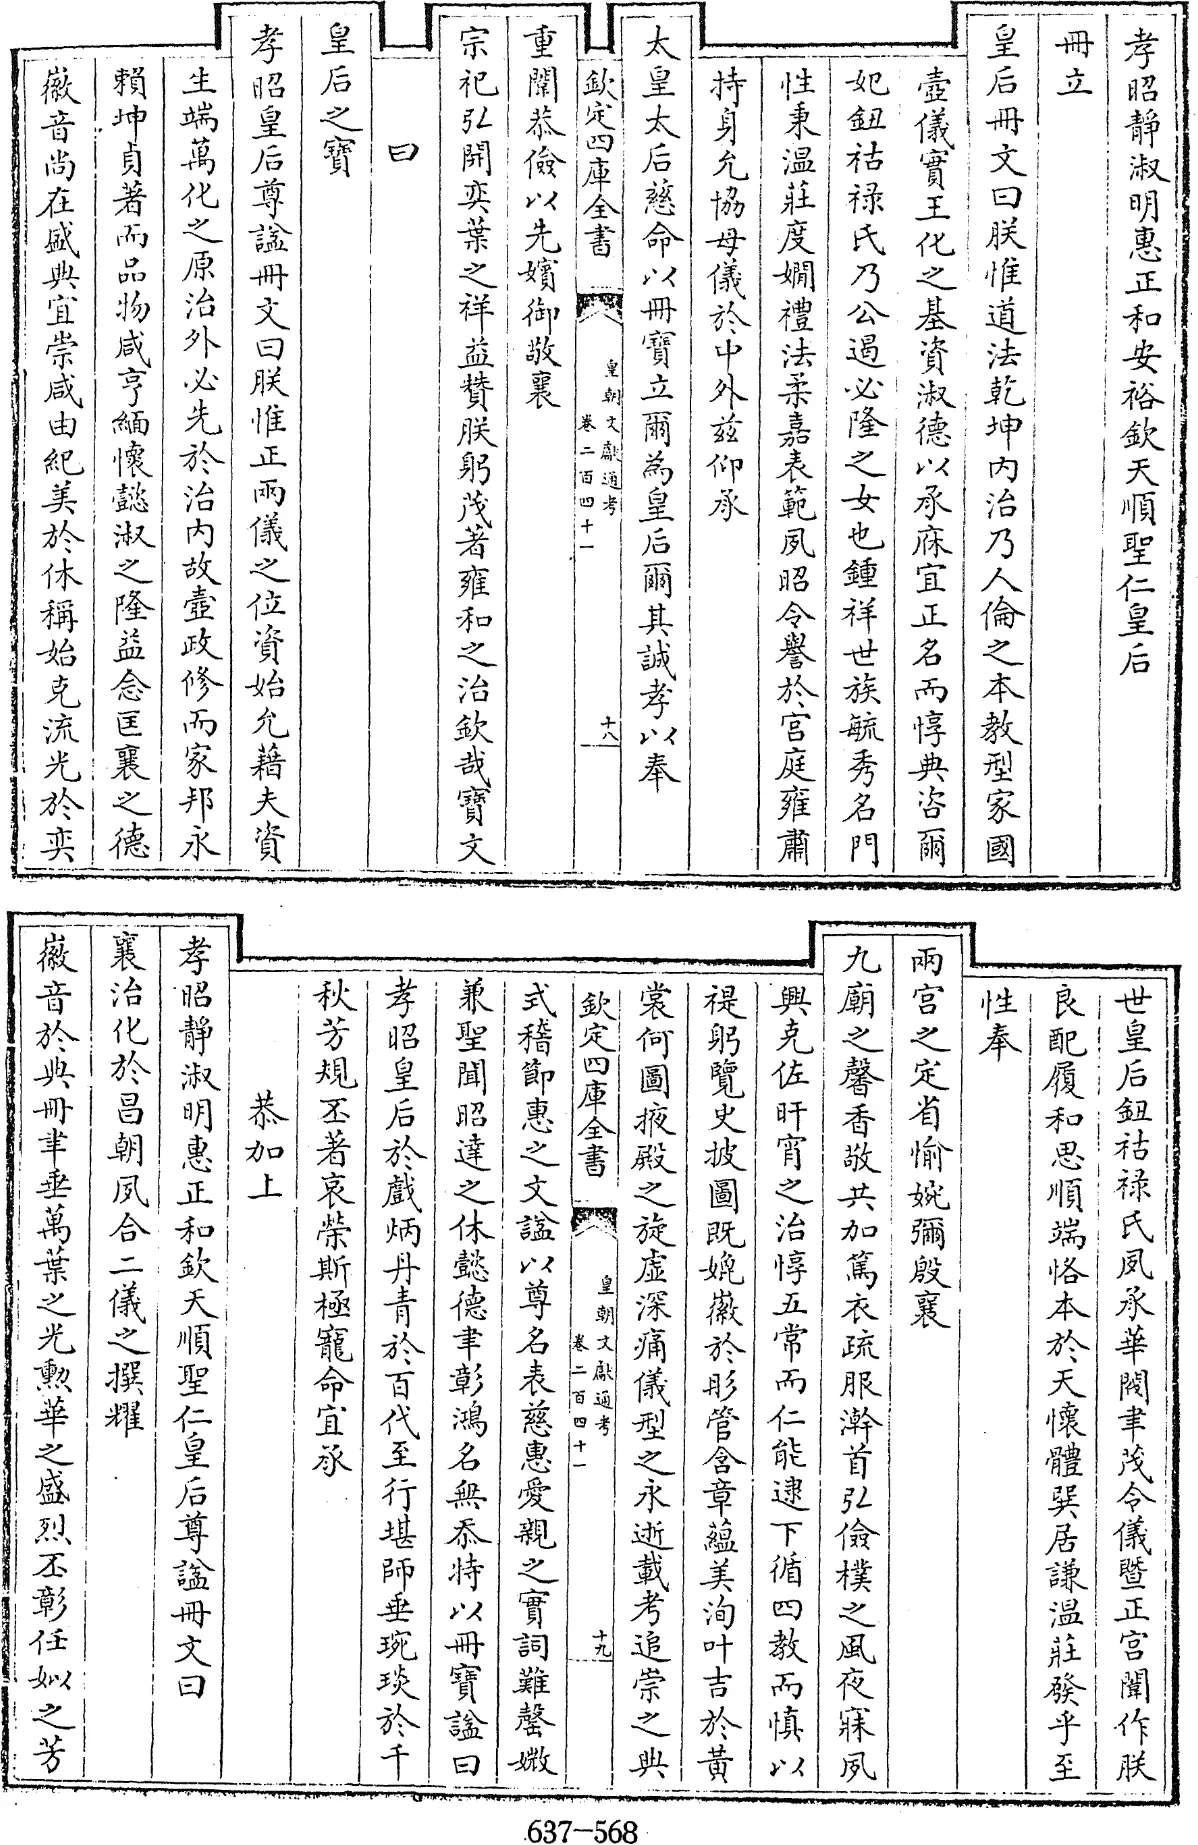 孝昭靜淑明惠正和安裕欽天順聖仁皇后
冊立
皇后冊文曰朕惟道法乾坤内治乃人倫之本教型家國
壼儀實王化之基資淑德以承庥宜正名而惇典咨爾
妃鈕祜祿氏乃公遏必隆之女也鍾祥世族毓秀名門
性秉温莊度嫺禮法柔嘉表範夙昭令譽於宫庭雍肅
持身允協母儀於中外兹仰承
太皇太后慈命以冊寶立爾為皇后爾其誠孝以奉
欽定四庫全書
皇朝文獻通考
卷二百四十一
十八
重闈恭儉以先嬪御敬襄
宗祀弘開奕葉之祥益贊朕躬茂著雍和之治欽哉寶文
曰
皇后之寶
孝昭皇后尊諡冊文曰朕惟正兩儀之位資始允藉夫資
生端萬化之原治外必先於治内故壼政修而家邦永
賴坤貞著而品物咸亨緬懷懿淑之隆益念匡襄之德
徽音尚在盛典宜崇咸由紀美於休稱始克流光於奕
世皇后鈕祜祿氏夙承華閥聿茂令儀暨正宫闈作朕
良配履和思順端恪本於天懷體巽居謙温莊發乎至
性奉
兩宫之定省愉婉彌殷襄
九廟之馨香敬共加篤衣疏服澣首弘儉樸之風夜寐夙
興克佐旰宵之治惇五常而仁能逮下循四教而慎以
禔躬覽史披圖既媲徽於彤管含章蘊美洵叶吉於黄
裳何圖掖殿之旋虚深痛儀型之永逝載考追崇之典
欽定四庫全書
皇朝文獻通考
卷二百四十一
十九
式稽節惠之文諡以尊名表慈惠愛親之實詞難罄媺
兼聖聞昭達之休懿德聿彰鴻名無忝特以冊寶諡曰
孝昭皇后於戲炳丹青於百代至行堪師垂琬琰於千
秋芳規丕著哀榮斯極寵命宜承
恭加上
孝昭靜淑明惠正和欽天順聖仁皇后尊諡冊文曰
襄治化於昌朝夙合二儀之撰耀
徽音於典冊聿垂萬葉之光勲華之盛烈丕彰任姒之芳
637-568